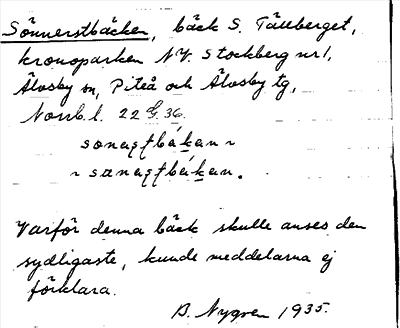 Sönnerstbäcken, bäck S. Tällberget,
kronoparken NV. Stockberg nr 1,
Älvsby sn, Piteå och Älvsby tg,
Norrb. l. 22 36.
Varför denna bäck skulle anses den
sydligaste, kunde meddelarna ej
förklara.
B. Nygren 1935.